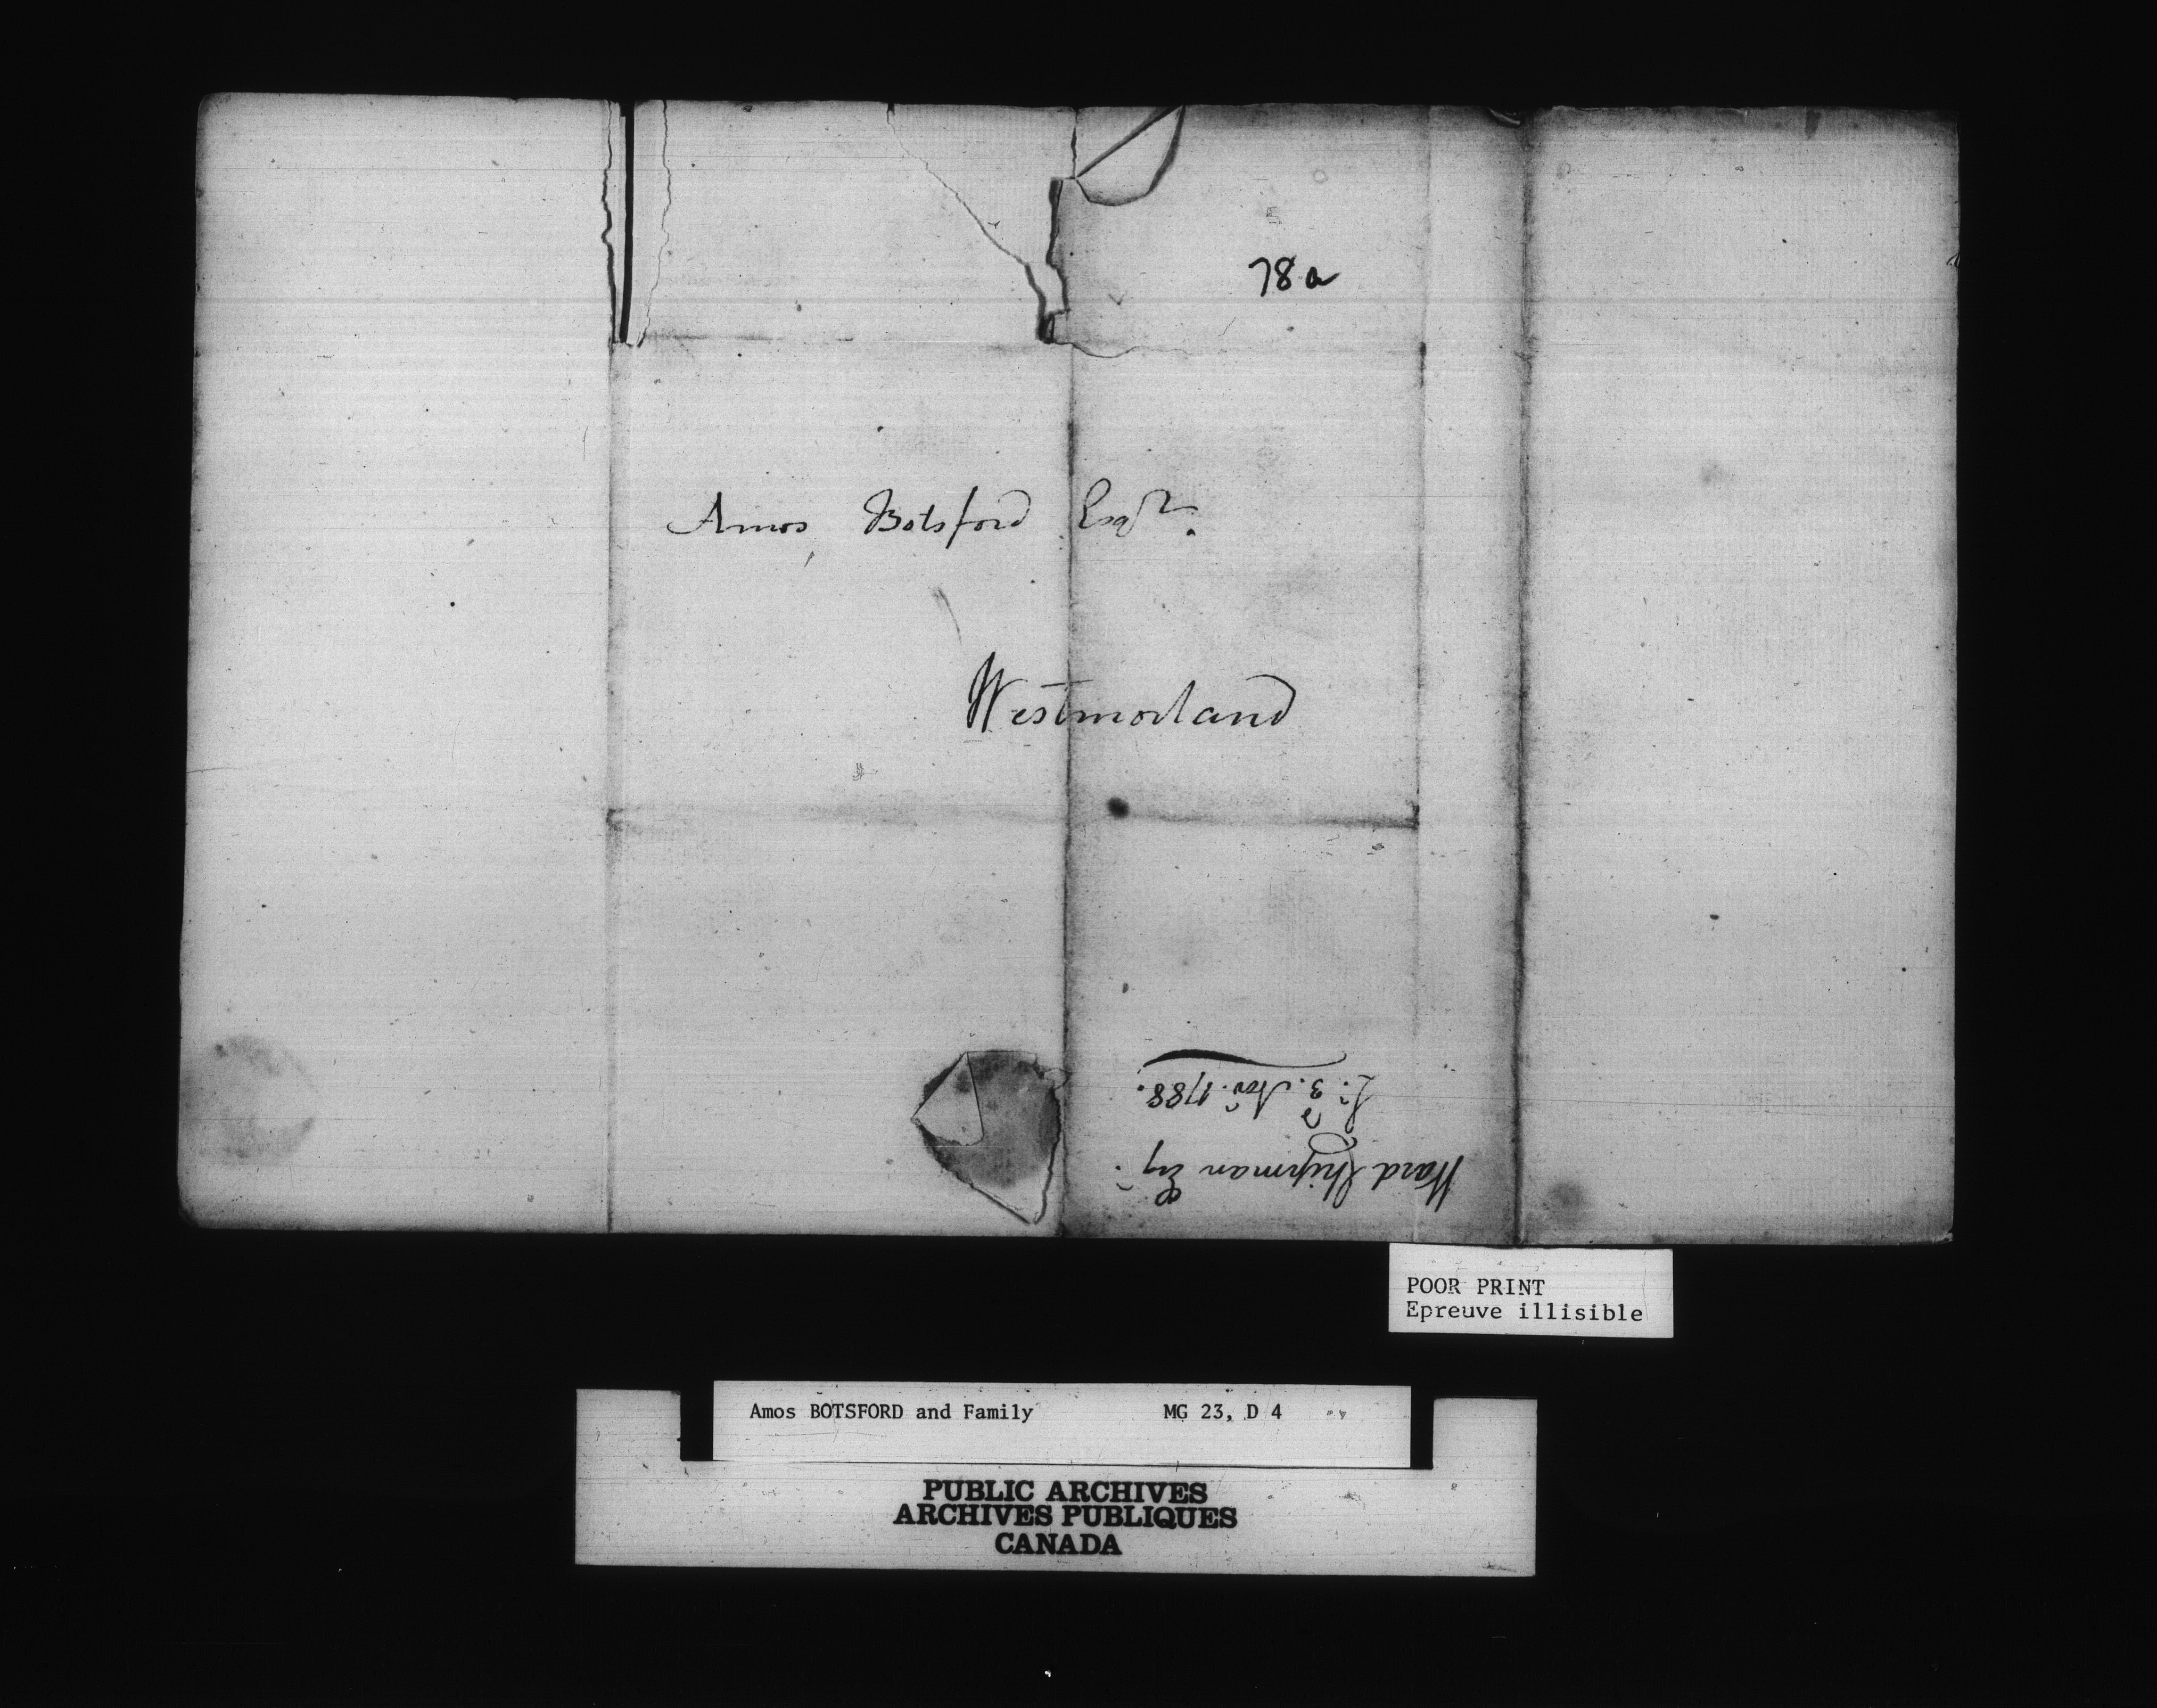 78a
Amos Botsford Esqr.
Westmorland
Ward Chipman Esqr.
3. Novr. 1788.
POOR PRINT
Epreuve illisible
Amos BOTSFORD and Family MG 23, D 4
PUBLIC ARCHIVES
ARCHIVES PUBLIQUES
CANADA